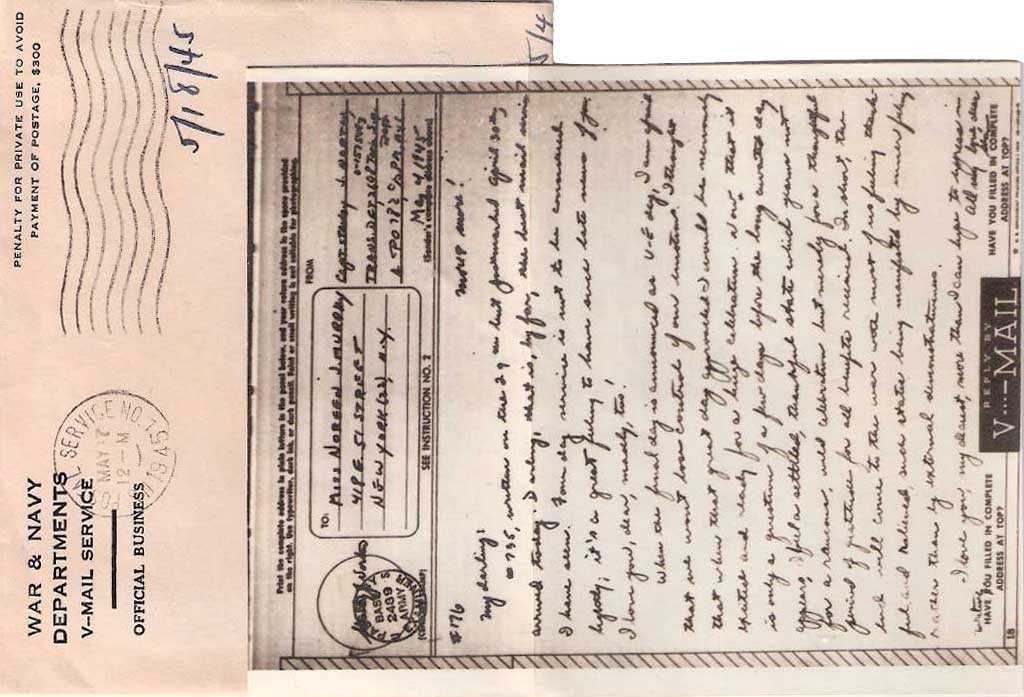 WAR & NAVY
DEPARTMENTS
V-MAIL SERVICE
OFFICIAL BUSINESS
PENALTY FOR PRIVATE USE TO AVOID
PAYMENT OF POSTAGE, $300
SERVICE NO.
MAY
12-M
1945
5/18/45
5/4
Print the complete address in plain letters in the panel below, and your return address in the space provided
on the right. Use typewriter, dark ink, or dark pencil. Faint or small writing is not suitable for photographing.
TO:
MISS NOREEN J. MURRAY
418 E. 51 STREET
NEW YORK (22) N.Y.
SEE INSTRUCTION NO. 2
FROM
Capt.
MAY 4, 1945
(Sender's complete address above)
BASE
2489
ARMY
(CENSOR'S STAMP)
#176
MOUP MORE!
My darling:
#735, written on the 29th but postmarked April 30th,
arrived today. Darling, that is, by far, the best mail service
I have seen. Four day service is not to be considered
lightly; it's a great feeling to have such late news of you.
I love you, dear, madly, too!
When the final day is announced as V-E day, I am afraid
that we won't lose control of our emotions. I thought
that when that great day approached I would be nervously
excited and ready for a huge celebration. Now that it
is only a question of a few days before the long awaited day
appears, I feel a settled, thankful state which yearns not
for a raucous, wild celebration but merely for a thankful
period of gratitude for all benefits received. In short, the
end will come to the war with most of us feeling thankful
and relieved, such states being manifested by inner feeling
rather than by external demonstrativeness.
I love you, my dearest, more than I can hope to express in
writing. All my love dear
HAVE YOU FILLED IN COMPLETE
ADDRESS AT TOP?
REPLY BY
V···—MAIL
HAVE YOU FILLED IN COMPLETE
ADDRESS AT TOP?
18